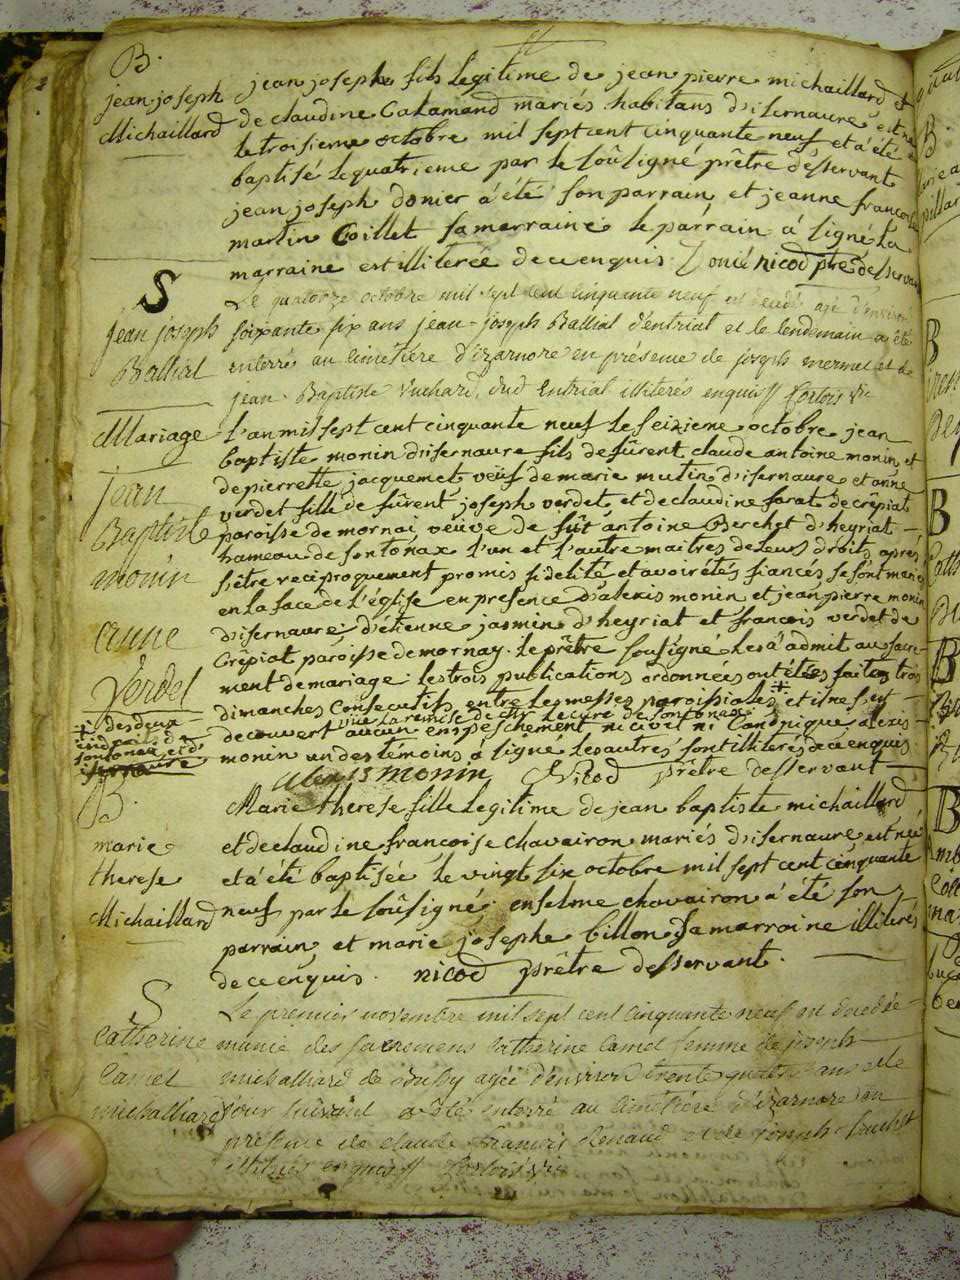 B.
jean joseph
Michaillard
jean joseph fils legitime de jean pierre michaillard et
de claudine Catamand mariés habitans d'isernaure est né
le troisieme octobre mil sept cent cinquante neuf et a été
baptisé le quatrieme par le soûsigné prêtre desservant
jean joseph donier a été son parrain et jeanne francoise
martin Coillet sa marraine le parrain a signé La
marraine est illiterée de ce enquis. Donié nicod ptre desservant
S
jean joseph
Ballial
Le quatorze octobre mil sept cent cinquante neuf est decedé agé d'environ
soixante six ans jean-joseph Ballial d'entrial et le lendemain a été
enterré au cimetière d'izarnore en présence de joseph mermet et de
jean Baptiste Vuchard, dud Entrial illiterés enquis // Cortois vic
Mariage
jean
Baptiste
monin
anne
Verdet
L'an mil sept cent cinquante neuf le seizieme octobre jean
baptiste monin d'isernaure fils de fûrent claude antoine monin et
de pierrette jacquemet veuf de marie mutin d'isernaure et anne
verdet fille de fûrent joseph verdet et de claudine farat de crêpiat
paroisse de mornai veuve de fût antoine Berchet d'heyriat
hameau de sontonax l'un et l'autre maitres de leurs droits après
s'être reciproquement promis fidelité et avoir étés fiancés se sont mariés
en la face de l'église en presence d'alexis monin et jean pierre monin
d'isernaure; d'étienne jasmin d'heyriat et francois verdet de
Crêpiat paroisse de mornay. le prêtre soussigné les a admit au sacre-
ment de mariage les trois publications ordonnées ont étées faites trois
dimanches Consecutifs entre les messes paroissiales + et il ne s'est
vue la remise de Mr le curé de sontonax
decouvert aucun empeschement ni civil ni Canonique alexis
monin un des témoins a signé les autres sont illiterés de ce enquis
+ des deux
endroits de
sontonax et d'
isernaure
alexis monin Nicod prêtre desservant
B.
marie
therese
Michaillard
Marie therese fille legitime de jean baptiste michaillard
et de claudine francoise chavairon mariés d'isernaure est née
et a été baptisée le vingt six octobre mil sept cent cinquante
neuf par le soûsigné. enselme chavairon a été son
parrain et marie josephe billon sa marraine illiterés
de ce enquis. nicod prêtre desservant.
S
Catherine
Camel
michalliard
Le premier novembre mil sept cent cinquante neuf est decedée
munie des sacremens catherine Camel femme de joseph
michalliard de agée d'environ trente quatre ans et le
jour suivant a été enterré au cimetière d'izarnore en
présence de claude françois Renaud et de joseph
illiterés enquis // Cortois vic